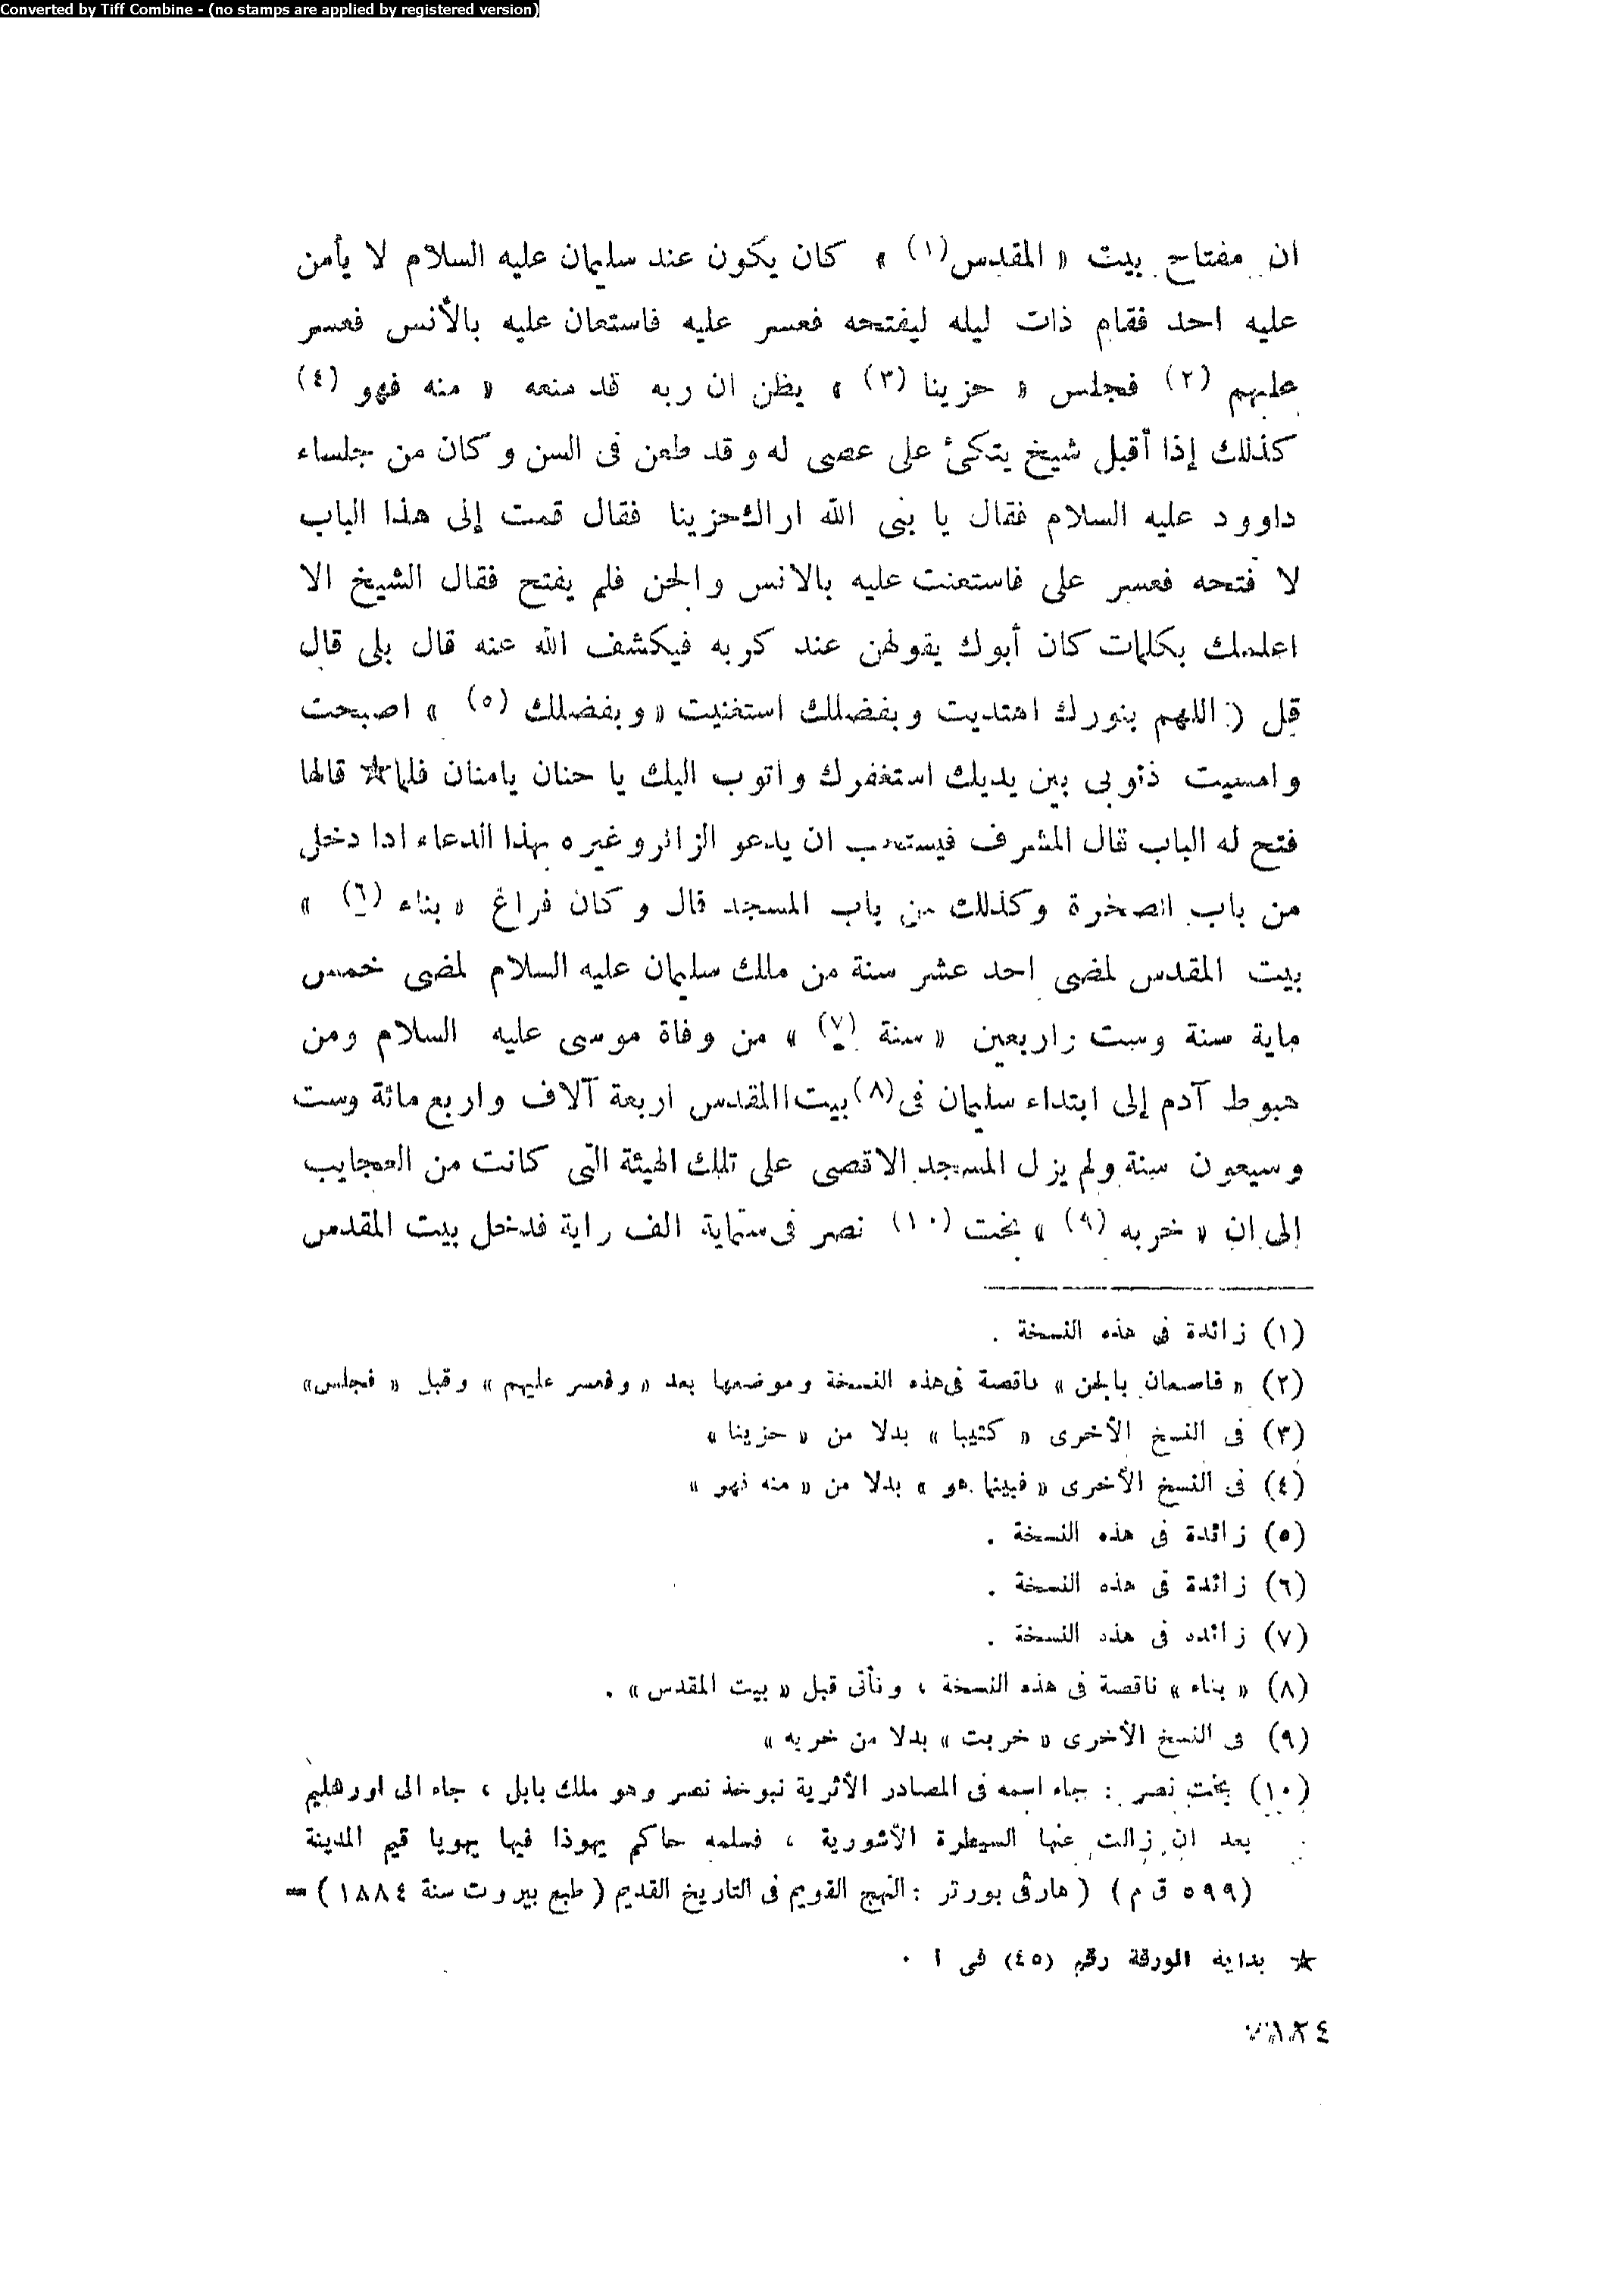 Converted by Tiff Combine - (no stamps are applied by registered version)
ان مفتاح بيت « المقدس(١) » كان يكون عند سليمان عليه السلام لا يأمن
عليه احد فقام ذات ليله ليفتحه فعسر عليه فاستعان عليه بالأنس فعسر
عليهم (٢) فجلس « حزينا (٣) » يظن ان ربه قد منعه « منه فهو (٤)
كذلك إذا أقبل شيخ يتكئ على عصى له وقد طعن فى السن وكان من جلساء
داوود عليه السلام فقال يا بنى الله اراك حزينا فقال قمت إلى هذا الباب
لا فتحه فعسر على فاستعنت عليه بالانس والجن فلم يفتح فقال الشيخ الا
اعلمك بكلمات كان أبوك يقولهن عند كربه فيكشف الله عنه قال بلى قال
قل ( اللهم بنورك اهتديت وبفضلك استغنيت « وبفضلك (٥) » اصبحت
وامسيت ذنوبى بين يديك استغفرك واتوب اليك يا حنان يامنان فلما☆ قالها
فتح له الباب قال المشرف فيستحب ان يدعو الزائر وغيره بهذا الدعاء ادا دخل
من باب الصخرة وكذلك من باب المسجد قال وكان فراغ « بناء (٦) »
بيت المقدس لمضى احد عشر سنة من ملك سليمان عليه السلام لمضى خمس
ماية سنة وست واربعين « سنة (٧) » من وفاة موسى عليه السلام ومن
هبوط آدم إلى ابتداء سليمان فى (٨) بيت االمقدس اربعة آلاف واربع مائة وست
وسبعون سنة ولم يزل المسجد الاقصى على تلك الهيئة التى كانت من العجايب
إلى ان « خربه (٩) » بخت (١٠) نصر فى ستماية الف راية فدخل بيت المقدس
(١) زائدة فى هذه النسخة .
(٢) « فاسعان بالجن » ناقصة فى هذه النسخة وموضعها بعد « وفعسر عليهم » وقبل « فجلس»
(٣) فى النسخ الأخرى « كتيبا » بدلا من « حزينا »
(٤) فى النسخ الأخرى « فبينما هو » بدلا من « منه فهو »
(٥) زائدة فى هذه النسخة .
(٦) زائدة فى هذه النسخة .
(٧) زائده فى هذه النسخة .
(٨) « بناء » ناقصة فى هذه النسخة ، وتأتى قبل « بيت المقدس» .
(٩) فى النسخ الأخرى « خربت » بدلا من خربه »
(١٠) بخت نصر : جاء اسمه فى المصادر الأثرية نبوخذ نصر وهو ملك بابل ، جاء الى اورهليم
بعد ان زالت عنها السيطرة الأشورية ، فسلمه حاكم يهوذا فيها يهويا قيم المدينة
(٥٩٩ ق م) (هارفى بورتر : النهج القويم فى التاريخ القديم (طبع بيروت سنة ١٨٨٤) =
☆ بداية الورقة رقم (٤٥) فى ا .